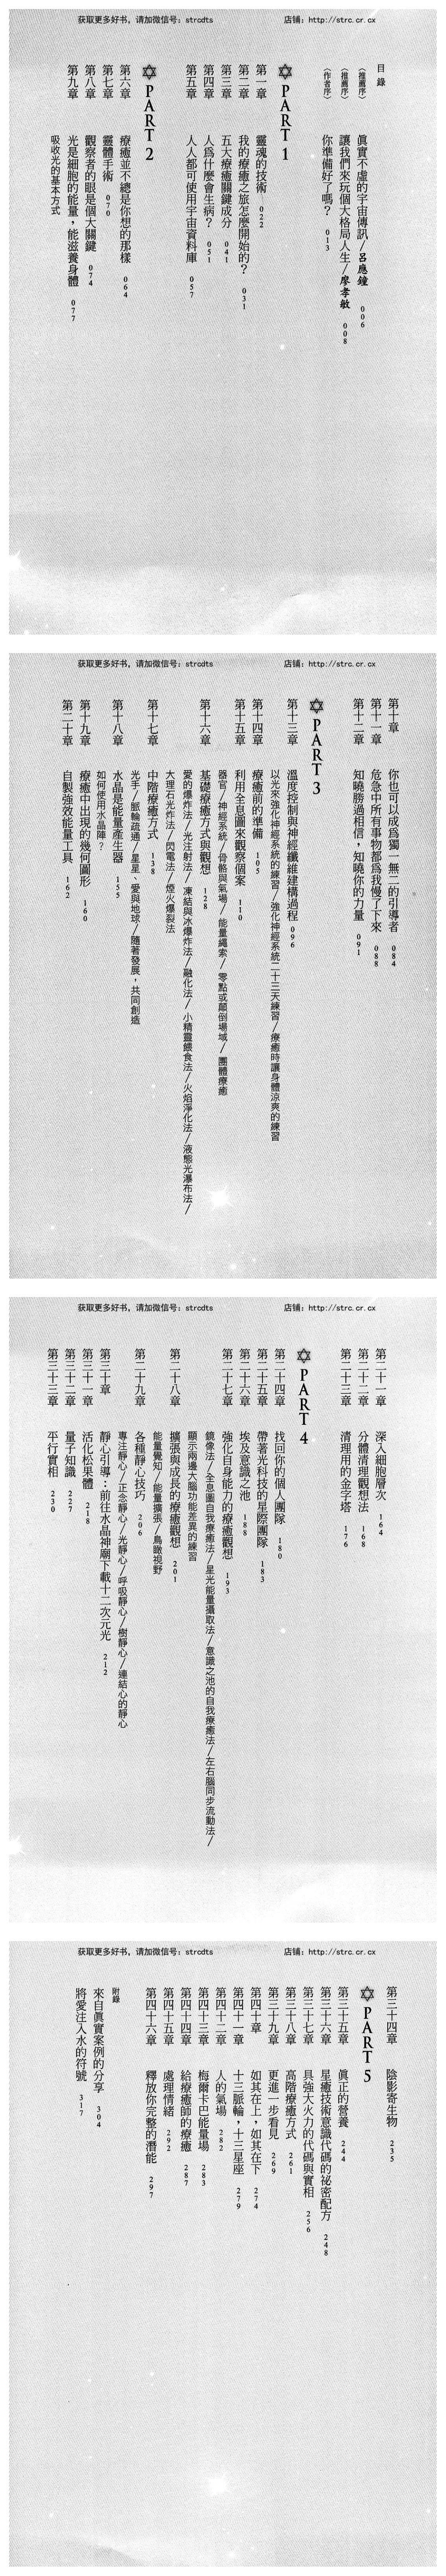 获取更多好书，请加微信号：strcdts
店铺：http://strc.cr.cx
目錄
〈推薦序〉 眞實不虛的宇宙傳訊／呂應鐘 006
〈推薦序〉 讓我們來玩個大格局人生／廖孝敏 008
〈作者序〉 你準備好了嗎？ 013
PART 1
第一章 靈魂的技術 022
第二章 我的療癒之旅怎麼開始的？ 031
第三章 五大療癒關鍵成分 041
第四章 人爲什麼會生病？ 051
第五章 人人都可使用宇宙資料庫 057
PART 2
第六章 療癒並不總是你想的那樣 064
第七章 靈體手術 070
第八章 觀察者的眼是個大關鍵 074
第九章 光是細胞的能量，能滋養身體 077
吸收光的基本方式
获取更多好书，请加微信号：strcdts
店铺：http://strc.cr.cx
第十章 你也可以成爲獨一無二的引導者 084
第十一章 危急中所有事物都爲我慢了下來 088
第十二章 知曉勝過相信，知曉你的力量 091
PART 3
第十三章 溫度控制與神經纖維建構過程 096
以光來強化神經系統的練習／強化神經系統二十三天練習／療癒時讓身體涼爽的練習
第十四章 療癒前的準備 105
第十五章 利用全息圖來觀察個案 110
器官／神經系統／骨骼與氣場／能量繩索／零點或顛倒場域／團體療癒
第十六章 基礎療癒方式與觀想 128
愛的爆炸法／光注射法／凍結與冰爆炸法／融化法／小精靈餵食法／火焰淨化法／液態光瀑布法／
大理石光炸法／閃電法／煙火爆裂法
第十七章 中階療癒方式 138
光手／脈輪疏通／星星、愛與地球／隨著發展，共同創造
第十八章 水晶是能量產生器 155
如何使用水晶陣？
第十九章 療癒中出現的幾何圖形 160
第二十章 自製強效能量工具 162
获取更多好书，请加微信号：strcdts
店铺：http://strc.cr.cx
第二十一章 深入細胞層次 164
第二十二章 分體清理觀想法 168
第二十三章 清理用的金字塔 176
PART 4
第二十四章 找回你的個人團隊 180
第二十五章 帶著光科技的星際團隊 183
第二十六章 埃及意識之池 188
第二十七章 強化自身能力的療癒觀想 193
鏡像法／全息圖自我療癒法／星光能量攝取法／意識之池的自我療癒法／左右腦同步流動法／
顯示兩邊大腦功能差異的練習
第二十八章 擴張與成長的療癒觀想 201
能量覺知／能量擴張／鳥瞰視野
第二十九章 各種靜心技巧 206
專注靜心／正念靜心／光靜心／呼吸靜心／樹靜心／連結心的靜心
第三十章 靜心引導：前往水晶神廟下載十二次元光 212
第三十一章 活化松果體 218
第三十二章 量子知識 227
第三十三章 平行實相 230
获取更多好书，请加微信号：strcdts
店铺：http://strc.cr.cx
第三十四章 陰影寄生物 235
PART 5
第三十五章 眞正的營養 244
第三十六章 星癒技術意識代碼的祕密配方 248
第三十七章 具強大火力的代碼與實相 256
第三十八章 高階療癒方式 261
第三十九章 更進一步看見 269
第四十章 如其在上，如其在下 274
第四十一章 十三脈輪，十三星座 279
第四十二章 人的氣場 282
第四十三章 梅爾卡巴能量場 283
第四十四章 給療癒師的療癒 287
第四十五章 處理情緒 292
第四十六章 釋放你完整的潛能 297
附錄
來自眞實案例的分享 304
將愛注入水的符號 317